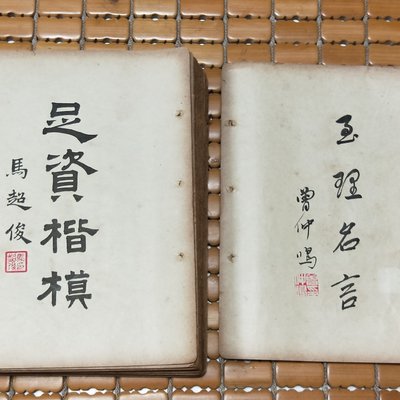 足資楷模
馬超俊
至理名言
曾仲鳴